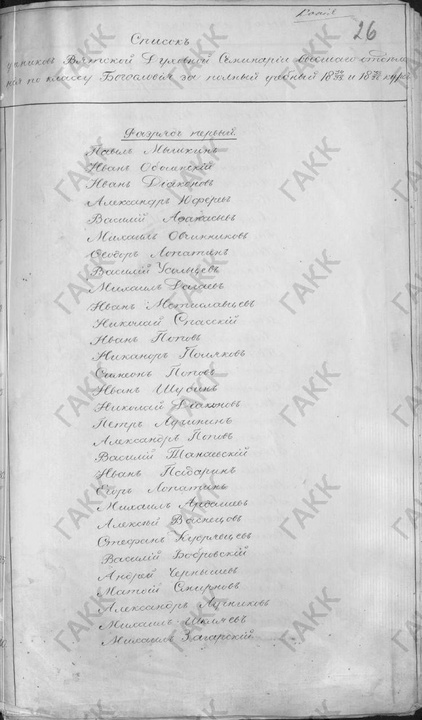 26
Списокъ
учениковъ Вятской Духовной Семинаріи высшаго отдѣле-
нія по классу Богословія за полный учебный и курсъ
Разрядъ первый.
Павелъ Мышкинъ
Иванъ
Иванъ Дьяконовъ
Александръ Юферевъ
Василій Аѳанасьевъ
Михаилъ Овчинниковъ
Ѳеодоръ Лопатинъ
Василій Усольцевъ
Михаилъ
Иванъ Мстиславцевъ
Николай Спасскій
Иванъ Поповъ
Никаноръ Поляковъ
Симеонъ Поповъ
Иванъ Шубинъ
Николай Дьяконовъ
Петръ
Александръ Поповъ
Василій Танаевскій
Иванъ
Егоръ Лопатинъ
Михаилъ
Алексѣй Васнецовъ
Стефанъ
Василій Бобровскій
Андрей Чернышевъ
Матѳей Смирновъ
Александръ Лучниковъ
Михаилъ
Михаилъ Загарскій
ГАКК